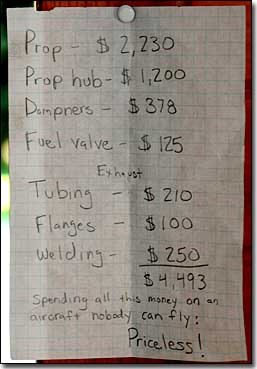 Prop - $ 2,230
Prop hub - $ 1,200
Dampners - $ 378
Fuel valve - $ 125
Exhaust
Tubing - $ 210
Flanges - $100
Welding - $ 250
$ 4,493
Spending all this money on an
aircraft nobody can fly:
Priceless!